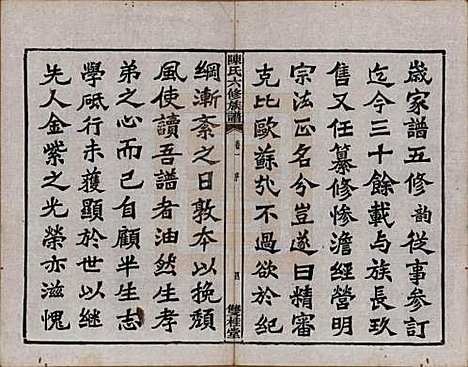 歲家譜五修韵從事參訂
迄今三十餘載与族長玖
售又任纂修慘澹經營明
宗法正名分豈遂曰精審
克比歐蘇外不過欲於紀
陳氏六修族譜 卷一 序 四 雙桂堂
綱漸紊之日敦本以挽頹
風使讀吾譜者油然生孝
弟之心而已自顧半生志
學砥行未獲顯於世以継
先人金紫之光榮亦滋愧